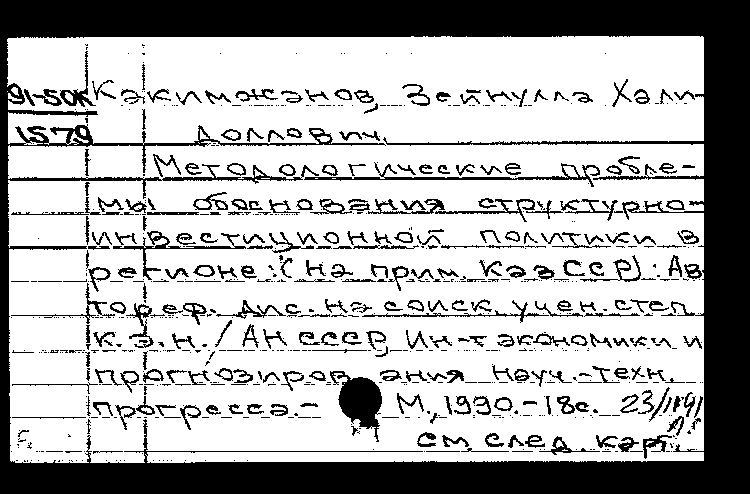 91-50К Кэкимжанов, Зейнулла Хали-
1579 доллович.
Методологические пробле-
мы обоснования структурно-
инвестиционной политики в
регионе: (на прим. КазССР) : Ав-
тореф. дис. на соиск. учен. степ.
к.э.н. / АН СССР, Ин-т экономики и
прогнозирования науч.-техн.
прогресса. - М., 1990. - 18с. 23/
см. след. карт.